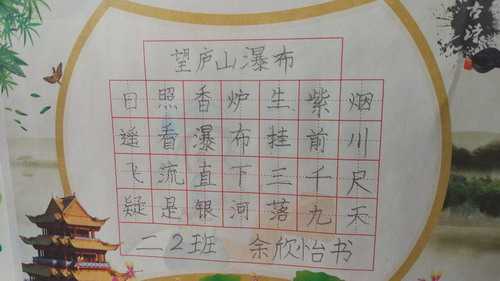 望庐山瀑布
日照香炉生紫烟
遥看瀑布挂前川
飞流直下三千尺
疑是银河落九天
二2班 余欣怡书